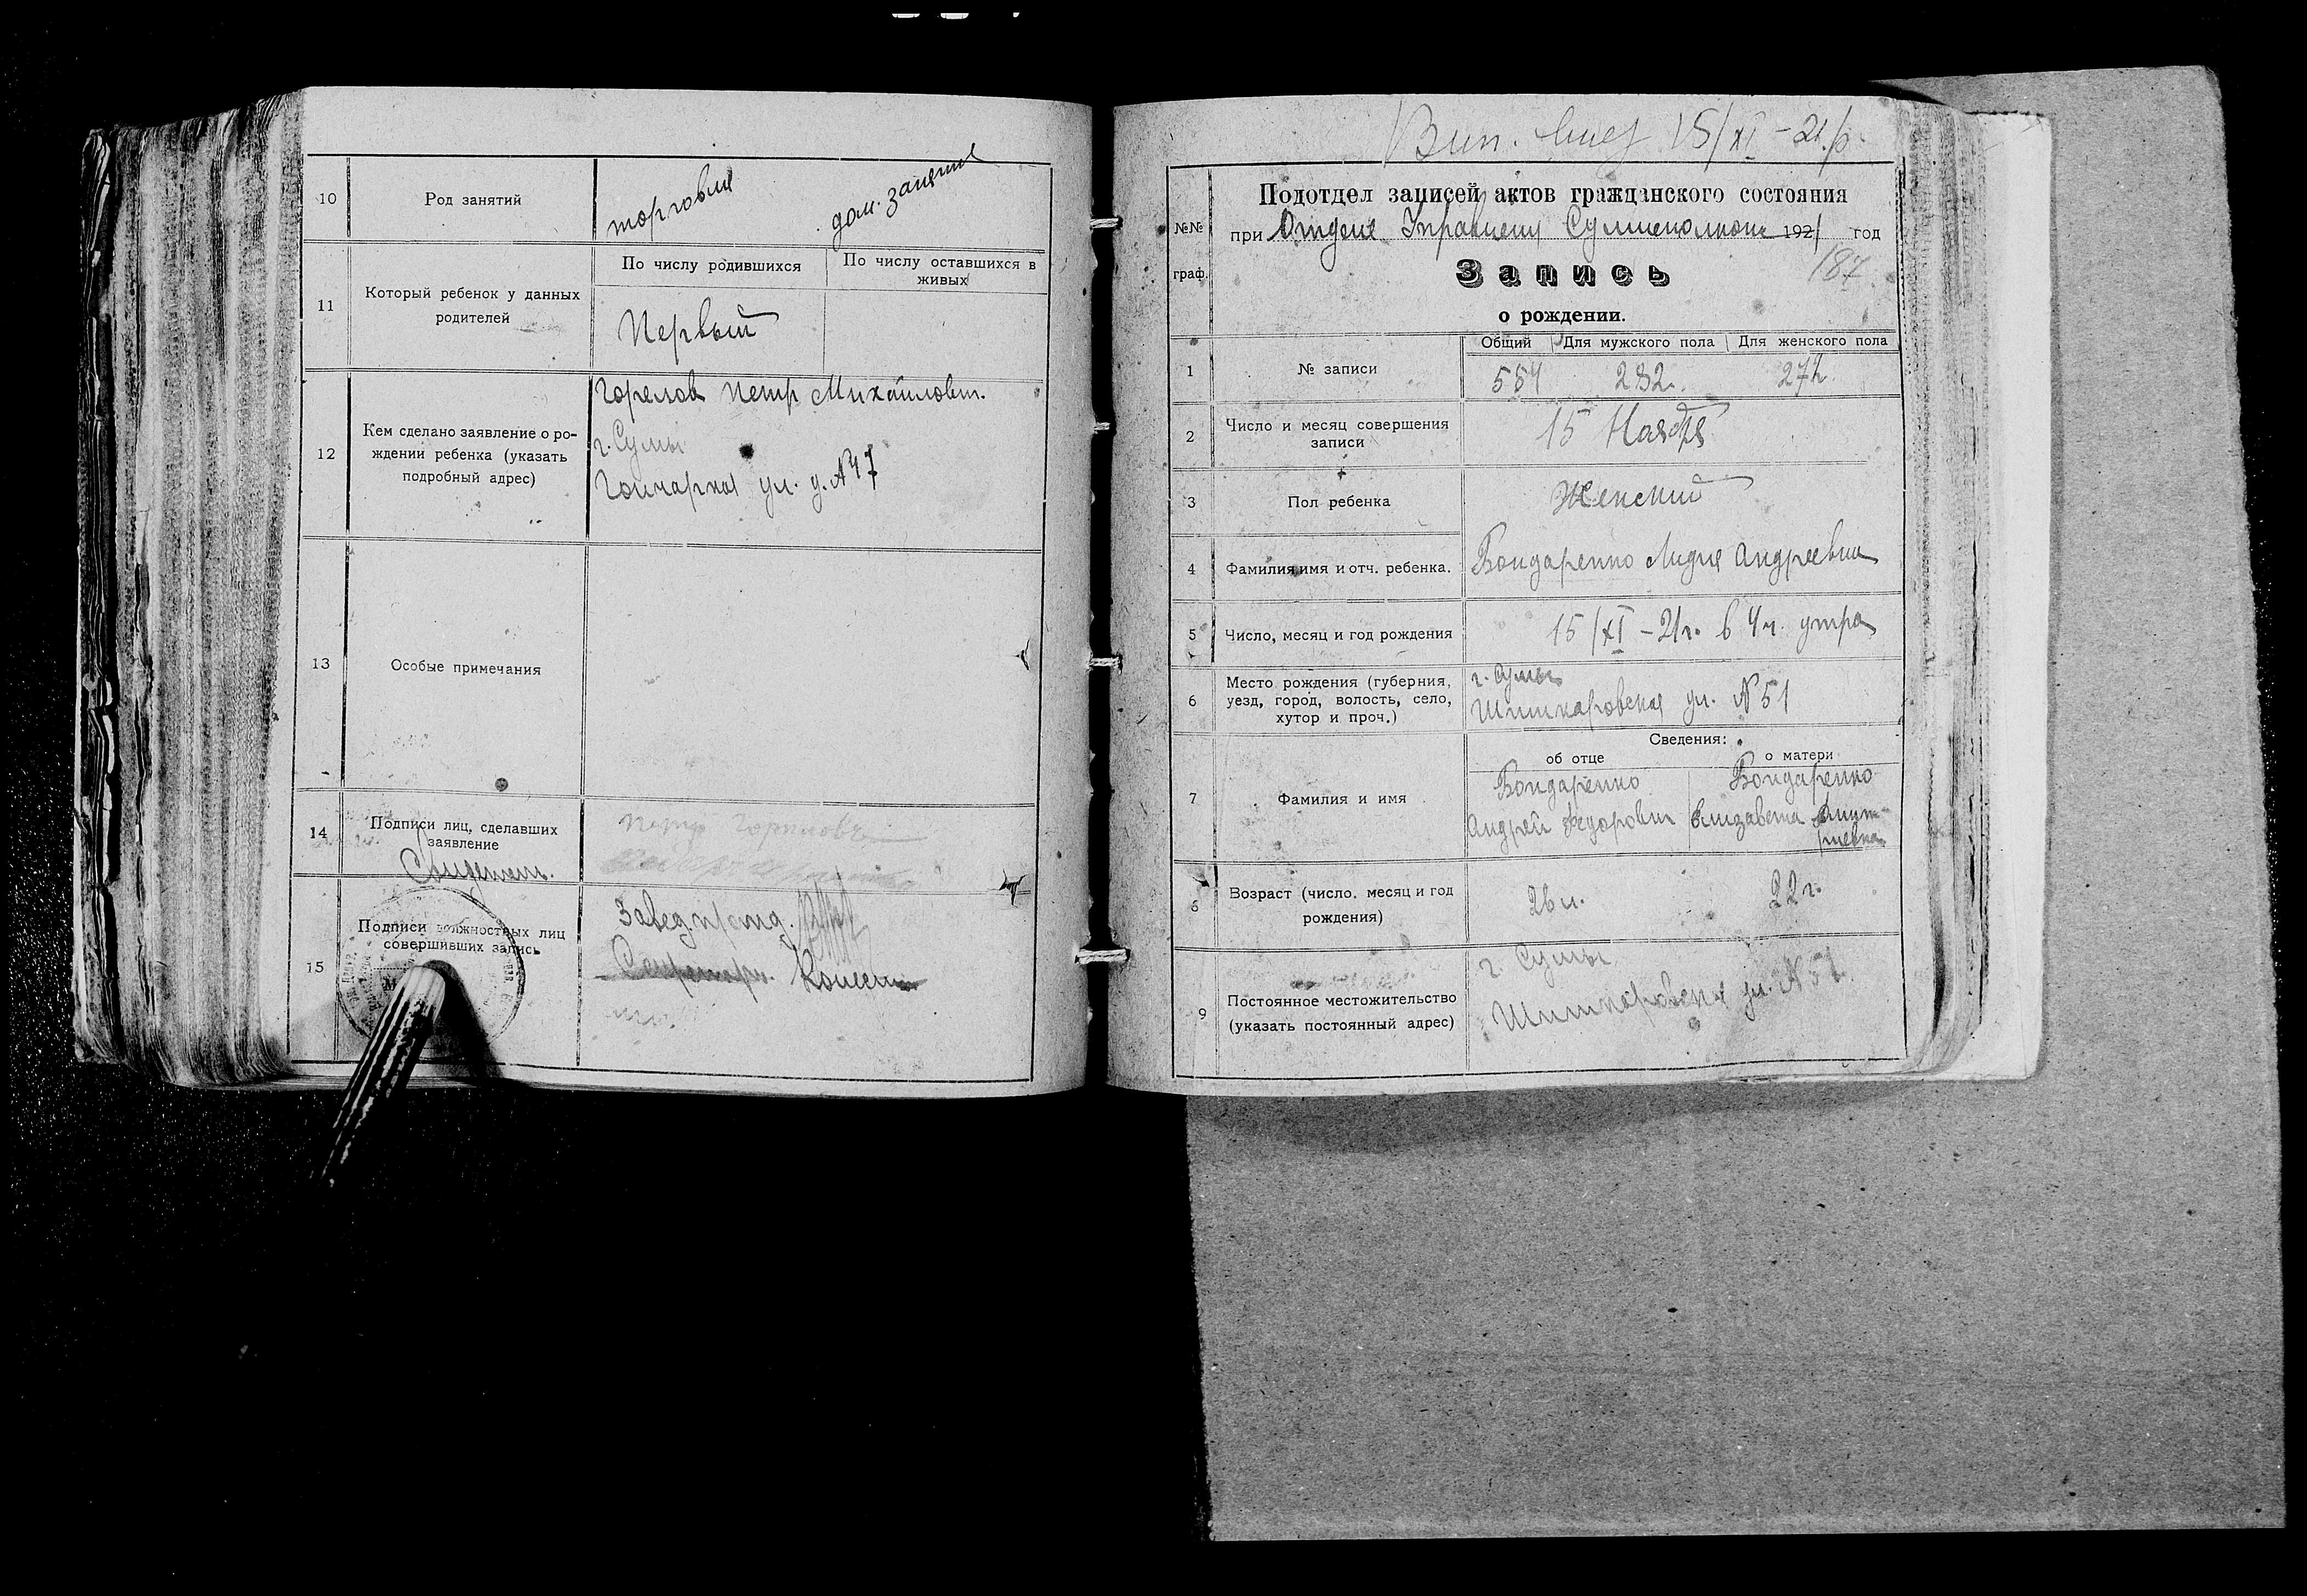 10
Род занятий
торговля
дом. занятия
11
Который ребенок у данных
родителей
По числу родившихся
По числу оставшихся в
живых
Первый
12
Кем сделано заявление о ро-
ждении ребенка (указать
подробный адрес)
Горелов Петр Михайлович.
г. Сумы
Гончарная ул. д. № 47
13
Особые примечания
14
Подписи лиц, сделавших
заявление
Петр Горелов
15
Подписи должностных лиц
совершивших запись
Завед.
Секретарь.
15/XI - 21 р.
№№
граф.
Подотдел записей актов гражданского состояния
при Отделе Управления 1921 год
187
Запись
о рождении.
1
№ записи
Общий
Для мужского пола
Для женского пола
554
282.
272.
2
Число и месяц совершения
записи
15 Ноября
3
Пол ребенка
Женский
4
Фамилия имя и отч. ребенка.
Бондаренко Лидия Андреевна
5
Число, месяц и год рождения
15/XI - 21 г. в 4 ч. утра
6
Место рождения (губерния,
уезд, город, волость, село,
хутор и проч.)
г. Сумы
Шишкаровская ул. № 51
7
Фамилия и имя
Сведения:
об отце
о матери
Бондаренко
Андрей Федорович
Бондаренко
Елизавета Дмит-
риевна
8
Возраст (число, месяц и год
рождения)
26 л.
22 г.
9
Постоянное местожительство
(указать постоянный адрес)
г. Сумы
Шишкаровская ул. № 51.